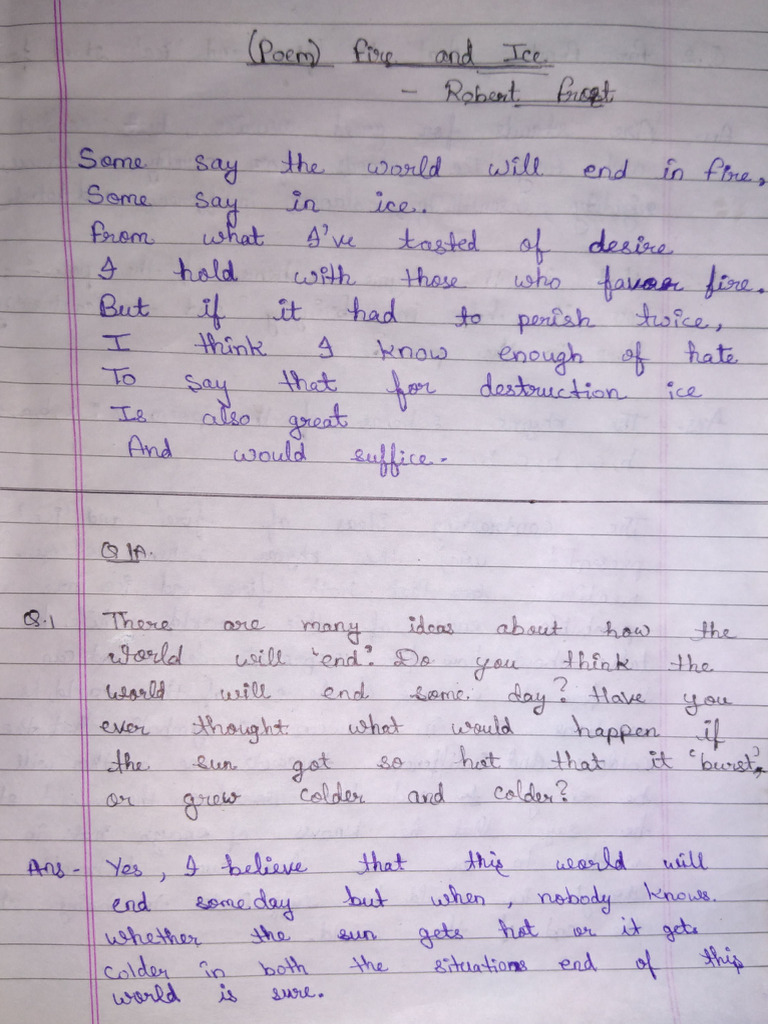 (Poem) Fire and Ice
- Robert Frost
Some say the world will end in fire,
Some say in ice.
From what I've tasted of desire
I hold with those who favour fire.
But if it had to perish twice,
I think I know enough of hate
To say that for destruction ice
Is also great
And would suffice.
Q/A.
Q.1 There are many ideas about how the
world will 'end'? Do you think the
world will end some day? Have you
ever thought what would happen if
the sun got so hot that it 'burst',
or grew colder and colder?
Ans- Yes, I believe that this world will
end someday but when, nobody knows.
whether the sun gets hot or it gets
colder in both the situations end of this
world is sure.